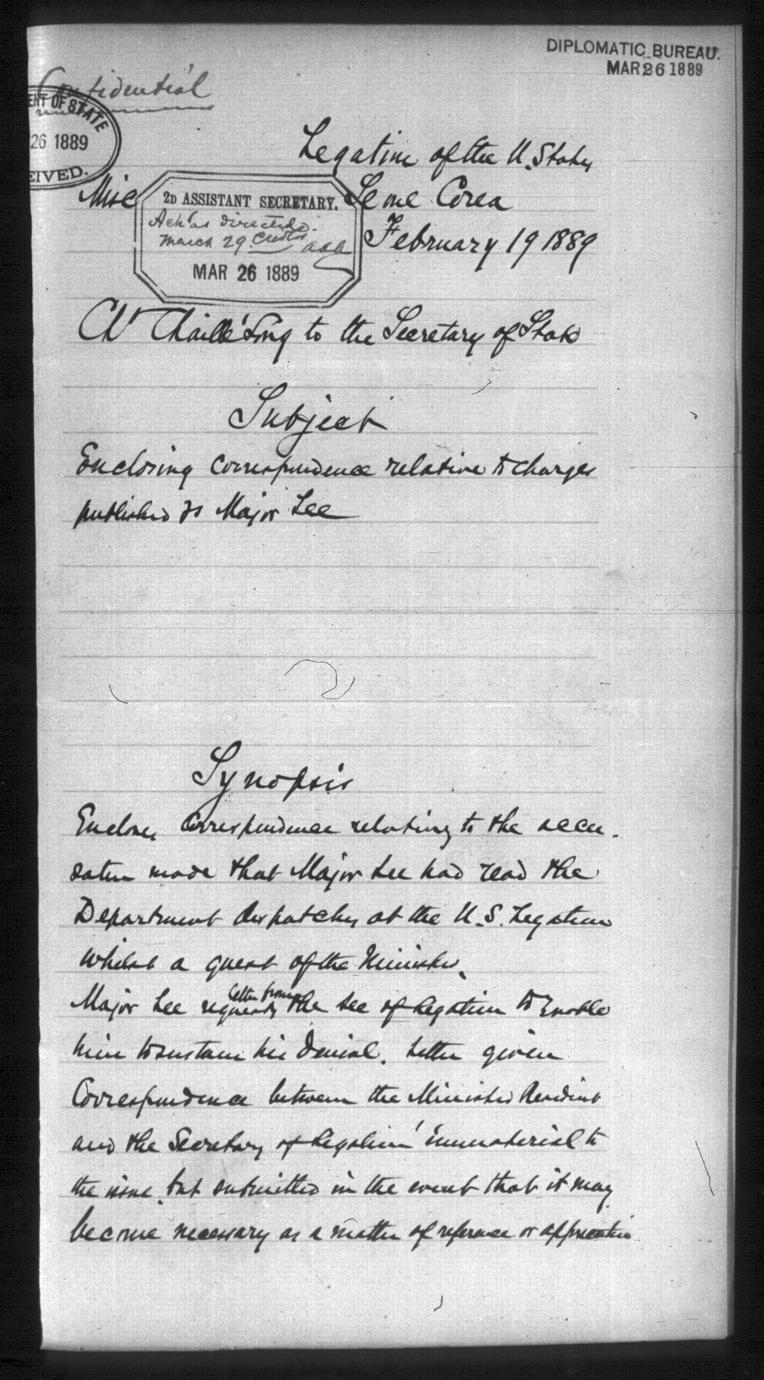 DIPLOMATIC BUREAU.
MAR 26 1889
Confidential
ENT OF STATE
26 1889
EIVED.
Legation of the U. States
Misc
Seoul Corea
February 19 1889
2D ASSISTANT SECRETARY.
Ack'd as directed
March 29
MAR 26 1889
Ch Chaillé Long to the Secretary of State
Subject
Enclosing correspondence relative to charges
published as Major Lee
Synopsis
Encloses correspondence relating to the accu-
sation made that Major Lee had read the
Department dispatches at the U.S. Legation
whilst a guest of the Minister.
letter from
Major Lee requests the Sec of Legation to enable
him to sustain his denial. Letter given
Correspondence between the Minister Resident
and the Secretary of Legation immaterial to
the issue but submitted in the event that it may
become necessary as a matter of reference or